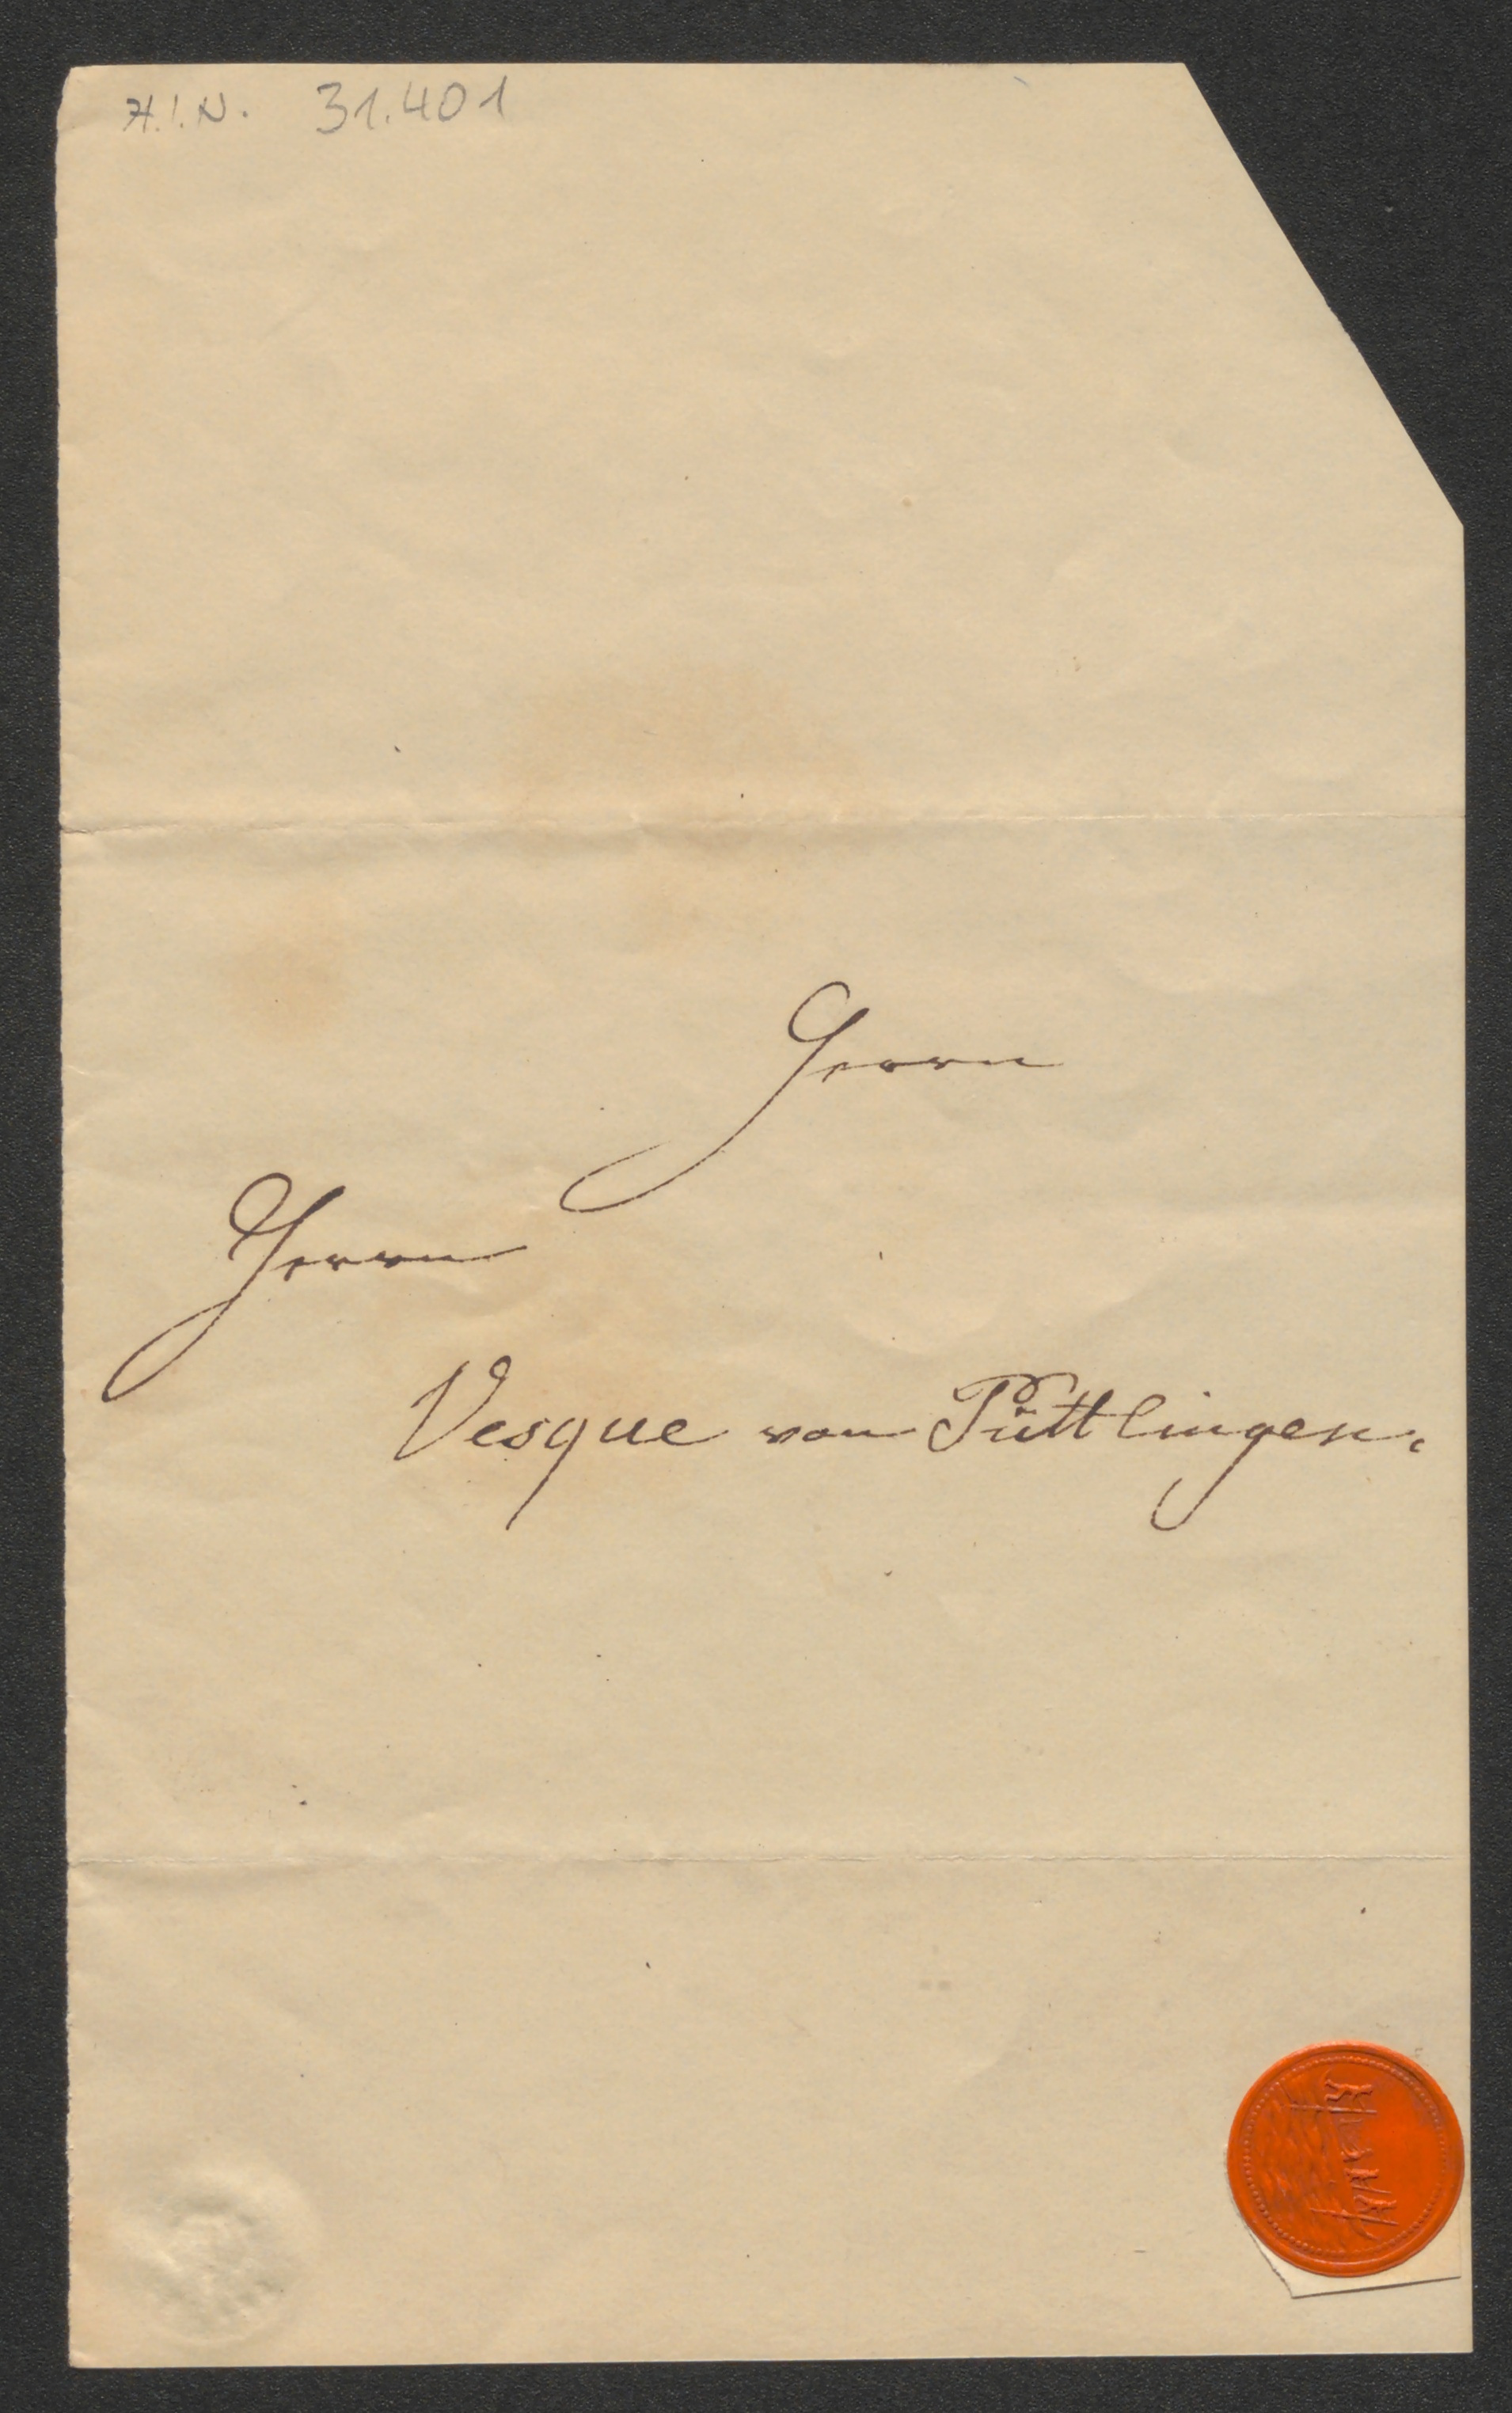 H.I.N. 31.401
Herrn
Herrn
Vesque von Püttlingen.